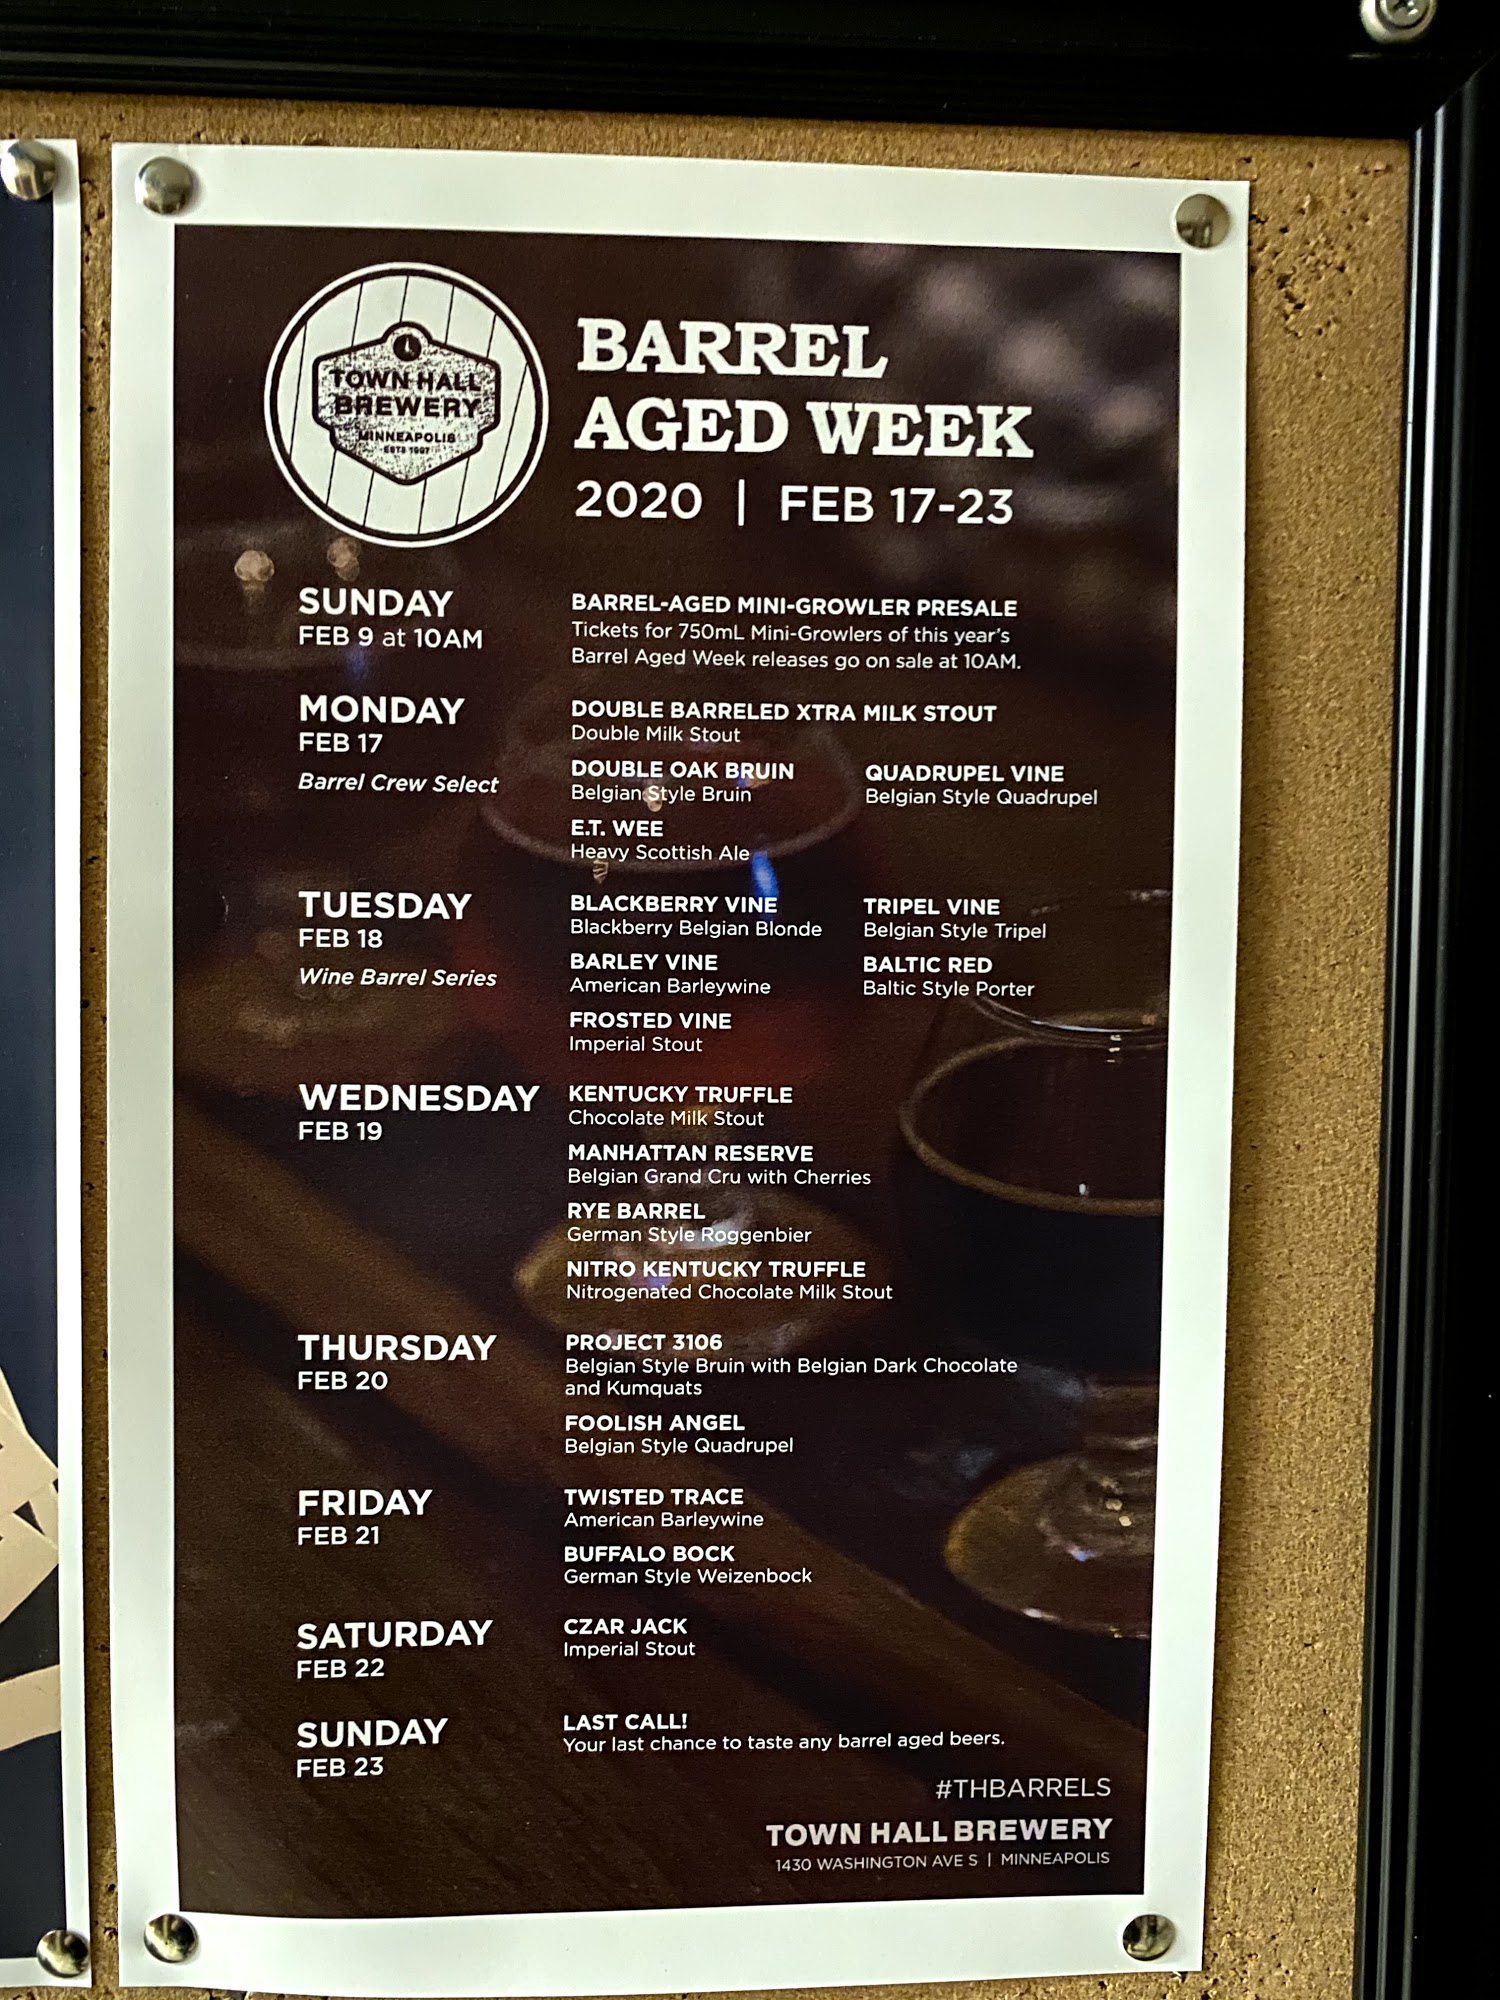 TOWN HALL
BREWERY
MINNEAPOLIS
ESTD 1997
BARREL
AGED WEEK
2020 | FEB 17-23
SUNDAY
FEB 9 at 10AM
BARREL-AGED MINI-GROWLER PRESALE
Tickets for 750mL Mini-Growlers of this year's
Barrel Aged Week releases go on sale at 10AM.
MONDAY
FEB 17
Barrel Crew Select
DOUBLE BARRELED XTRA MILK STOUT
Double Milk Stout
DOUBLE OAK BRUIN
Belgian Style Bruin
QUADRUPEL VINE
Belgian Style Quadrupel
E.T. WEE
Heavy Scottish Ale
TUESDAY
FEB 18
Wine Barrel Series
BLACKBERRY VINE
Blackberry Belgian Blonde
TRIPEL VINE
Belgian Style Tripel
BARLEY VINE
American Barleywine
BALTIC RED
Baltic Style Porter
FROSTED VINE
Imperial Stout
WEDNESDAY
FEB 19
KENTUCKY TRUFFLE
Chocolate Milk Stout
MANHATTAN RESERVE
Belgian Grand Cru with Cherries
RYE BARREL
German Style Roggenbier
NITRO KENTUCKY TRUFFLE
Nitrogenated Chocolate Milk Stout
THURSDAY
FEB 20
PROJECT 3106
Belgian Style Bruin with Belgian Dark Chocolate
and Kumquats
FOOLISH ANGEL
Belgian Style Quadrupel
FRIDAY
FEB 21
TWISTED TRACE
American Barleywine
BUFFALO BOCK
German Style Weizenbock
SATURDAY
FEB 22
CZAR JACK
Imperial Stout
SUNDAY
FEB 23
LAST CALL!
Your last chance to taste any barrel aged beers.
#THBARRELS
TOWN HALL BREWERY
1430 WASHINGTON AVE S | MINNEAPOLIS